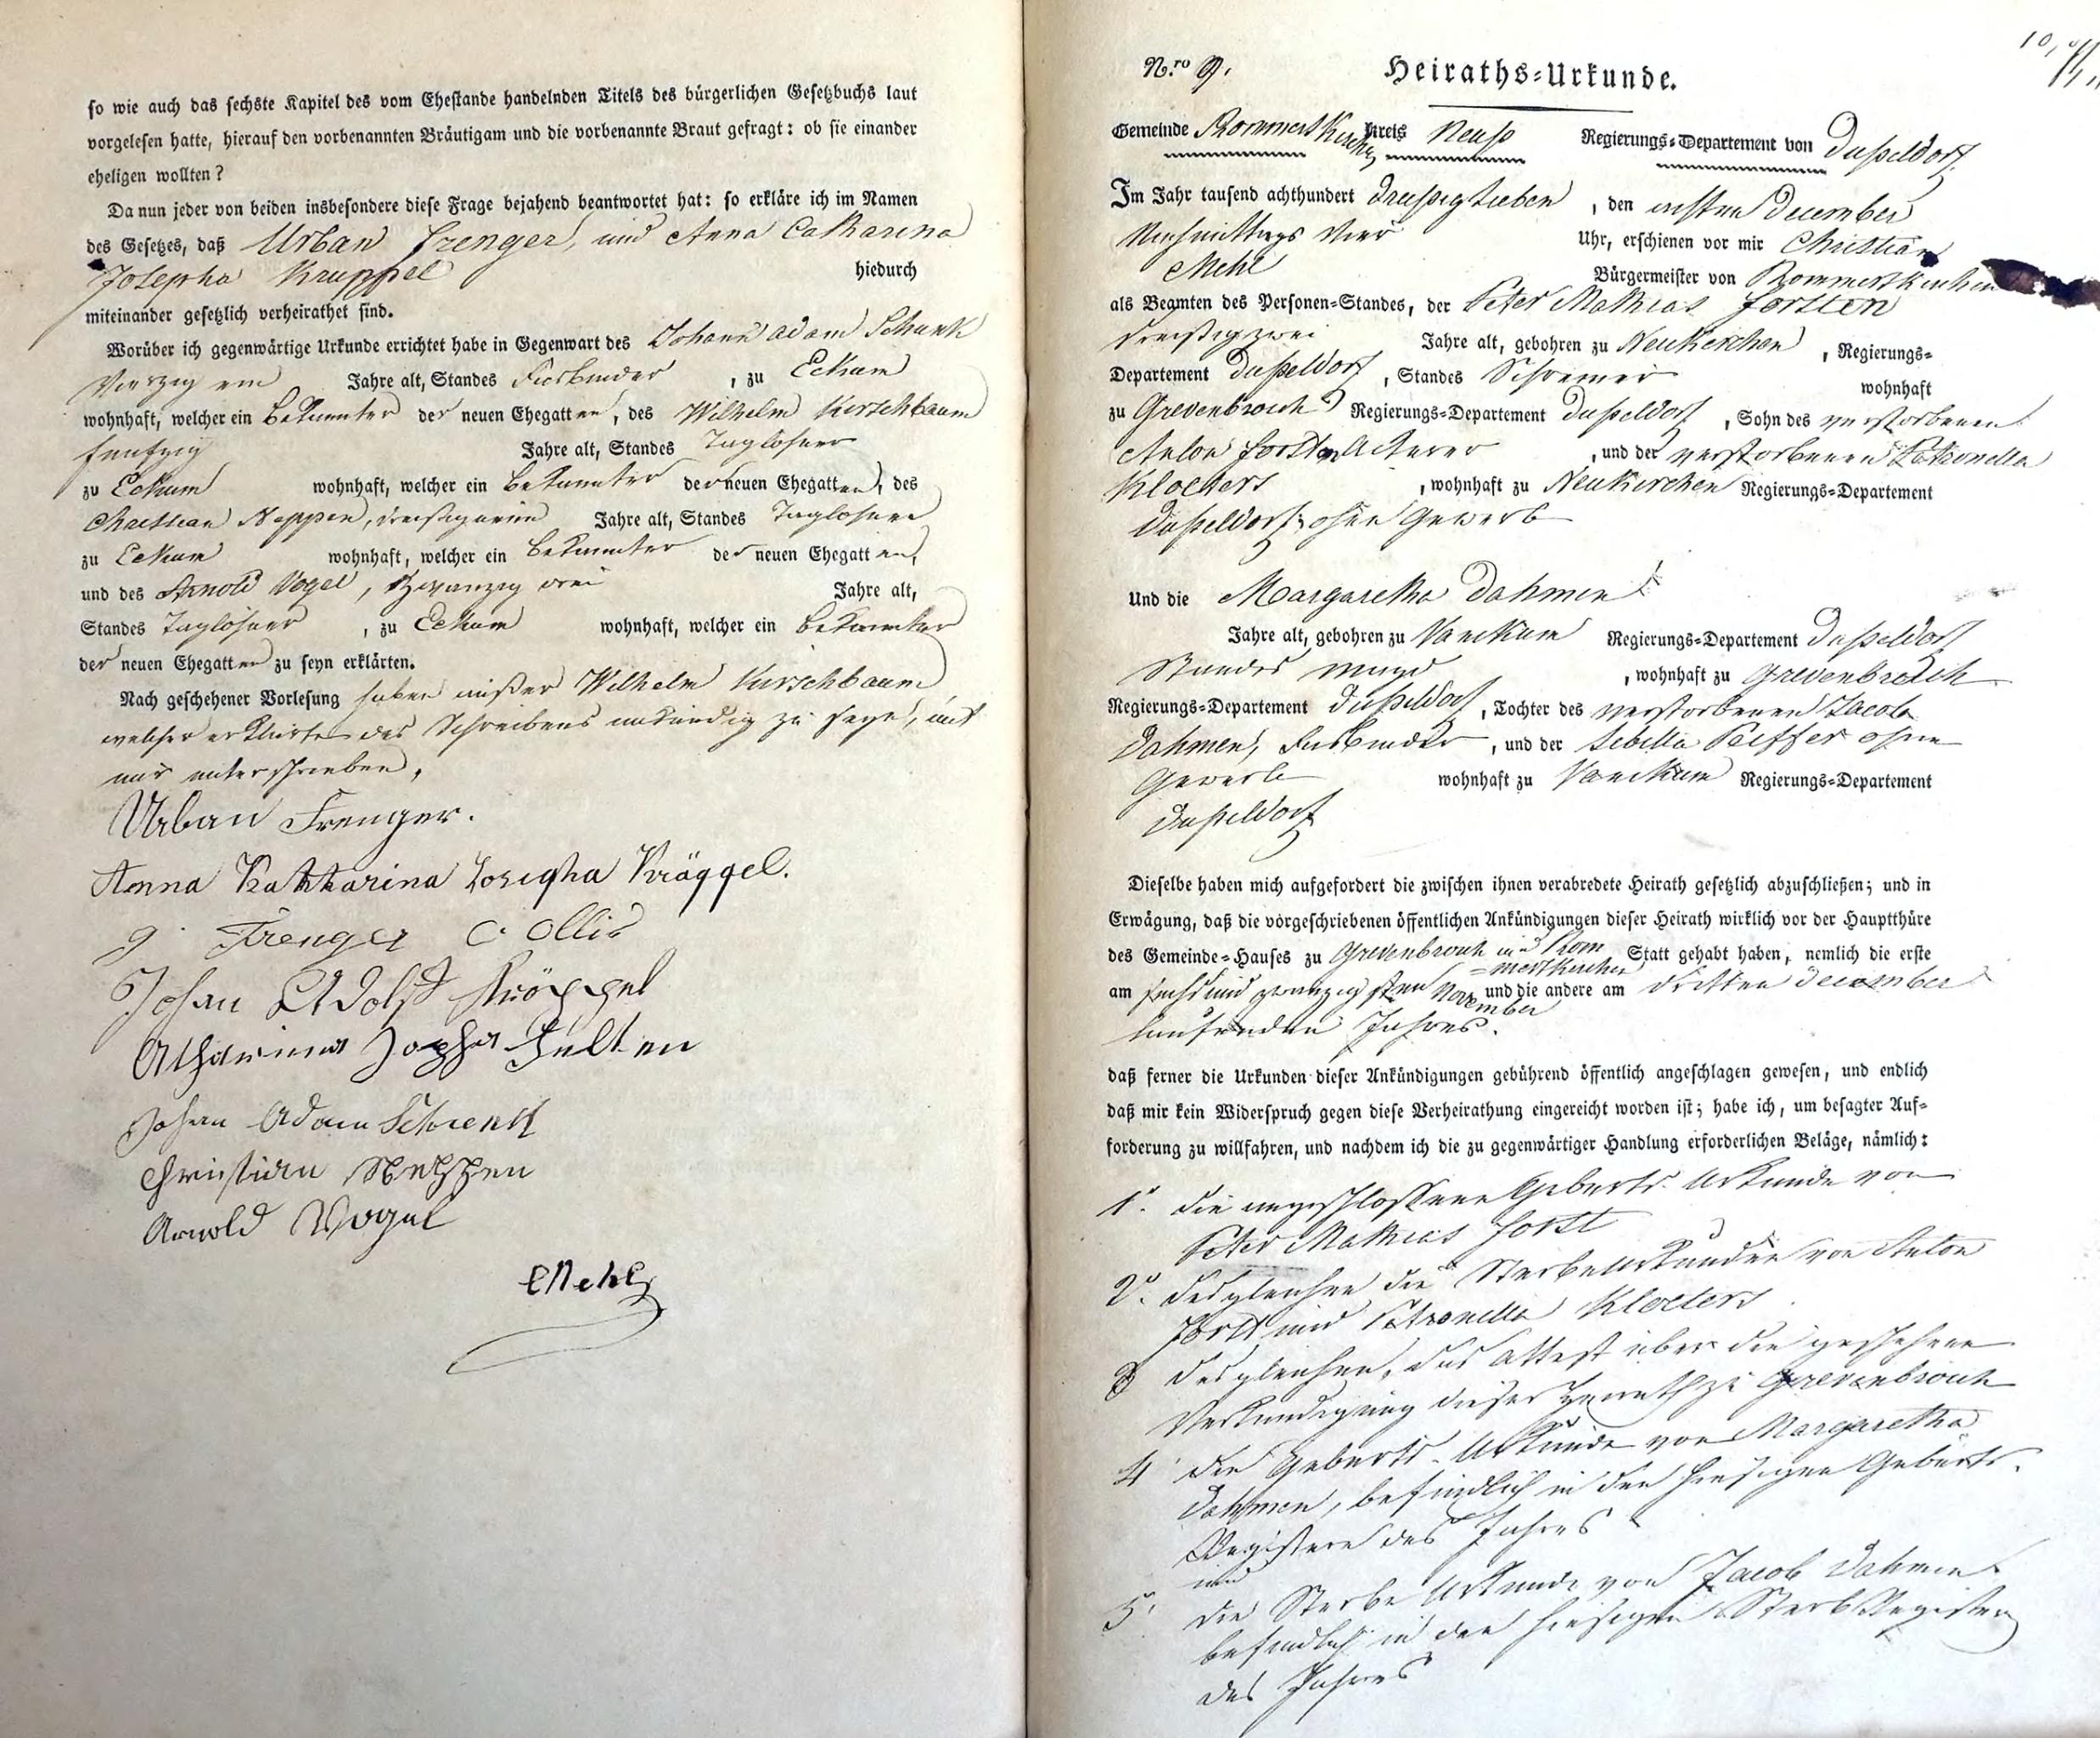 so wie auch das sechste Kapitel des vom Ehestande handelnden Titels des bürgerlichen Gesetzbuchs laut
vorgelesen hatte, hierauf den vorbenannten Bräutigam und die vorbenannte Braut gefragt: ob sie einander
eheligen wollten?
Da nun jeder von beiden insbesondere diese Frage bejahend beantwortet hat: so erkläre ich im Namen
des Gesetzes, daß Urban Frenger, und Anna Catharina
Josepha Krüppel hiedurch
miteinander gesetzlich verheirathet sind.
Worüber ich gegenwärtige Urkunde errichtet habe in Gegenwart des Johann Adam Schunk
Vierzig ein Jahre alt, Standes Fasbinder, zu Eckum
wohnhaft, welcher ein Bekannter der neuen Ehegatten, des Wilhelm Kirschbaum
fünfzig Jahre alt, Standes Taglöhner
zu Eckum wohnhaft, welcher ein Bekannter der neuen Ehegatten, des
Christian Neppen, dreisig Jahre alt, Standes Taglöhner
zu Eckum wohnhaft, welcher ein Bekannter der neuen Ehegatten,
und des Arnold Vogel, Zwanzig drei Jahre alt,
Standes Taglöhner, zu Eckum wohnhaft, welcher ein Bekannter
der neuen Ehegatten zu seyn erklärten.
Nach geschehener Vorlesung haben außer Wilhelm Kirschbaum
welcher erklärte des Schreibens unkundig zu seyn, mit
mir unterschrieben.
Urban Frenger.
Anna Katharina Josepha Kröppel.
J. Frenger C. Ollis
Johan Adolf Kröppel
Catharina Fülten
Johan Adam Schunk
Christian Neppen
Arnold Vogel
CMehl
Nro 9. Heiraths-Urkunde.
Gemeinde Rommerskirchen Kreis Neuß Regierungs-Departement von Dusseldorf.
Im Jahr tausend achthundert dreißig sieben, den ersten December
Nachmittags Vier Uhr, erschienen vor mir Christian
Mehl Bürgermeister von Rommerskirchen
als Beamten des Personen-Standes, der Peter Mathias Forsten
dreißig zwei Jahre alt, gebohren zu Neukirchen, Regierungs-
Departement Dußeldorf, Standes Schreiner wohnhaft
zu Grevenbroich Regierungs-Departement Dußeldorf, Sohn des verstorbenen
Anton Forsten Ackerer, und der verstorbenen Petronella
Kloeters, wohnhaft zu Neukirchen Regierungs-Departement
Dußeldorf, ohne Gewerb
Und die Margaretha Dahmen
Jahre alt, gebohren zu Vanikum Regierungs-Departement Dußeldorf
Standes Magd, wohnhaft zu Grevenbroich
Regierungs-Departement Dußeldorf, Tochter des verstorbenen Jacob
Dahmen, Fasbinder, und der Sibilla Peiffer ohne
Gewerb wohnhaft zu Vanikum Regierungs-Departement
Dußeldorf
Dieselbe haben mich aufgefordert die zwischen ihnen verabredete Heirath gesetzlich abzuschließen; und in
Erwägung, daß die vorgeschriebenen öffentlichen Ankündigungen dieser Heirath wirklich vor der Hauptthüre
des Gemeinde-Hauses zu Grevenbroich und Rommerskirchen Statt gehabt haben, nemlich die erste
am sechs und zwanzigsten November und die andere am dritten December
laufenden Jahres.
daß ferner die Urkunden dieser Ankündigungen gebührend öffentlich angeschlagen gewesen, und endlich
daß mir kein Widerspruch gegen diese Verheirathung eingereicht worden ist; habe ich, um besagter Auf-
forderung zu willfahren, und nachdem ich die zu gegenwärtiger Handlung erforderlichen Beläge, nämlich:
1. die angeschlossene Geburts-Urkunde von
Peter Mathias Forst
2. desgleichen die Sterbeurkunden von Anton
Forst und Petronella Kloeters
3 desgleichen, das Attest über die geschehene
Verkündigung dieser Heirath zu Grevenbroich
4 die Geburts-Urkunde von Margaretha
Dahmen, befindlich in den hiesigen Geburts-
Registern des Jahres
und
5. die Sterbe Urkunde von Jacob Dahmen
befindlich in den hiesigen Sterb Registern
des Jahres